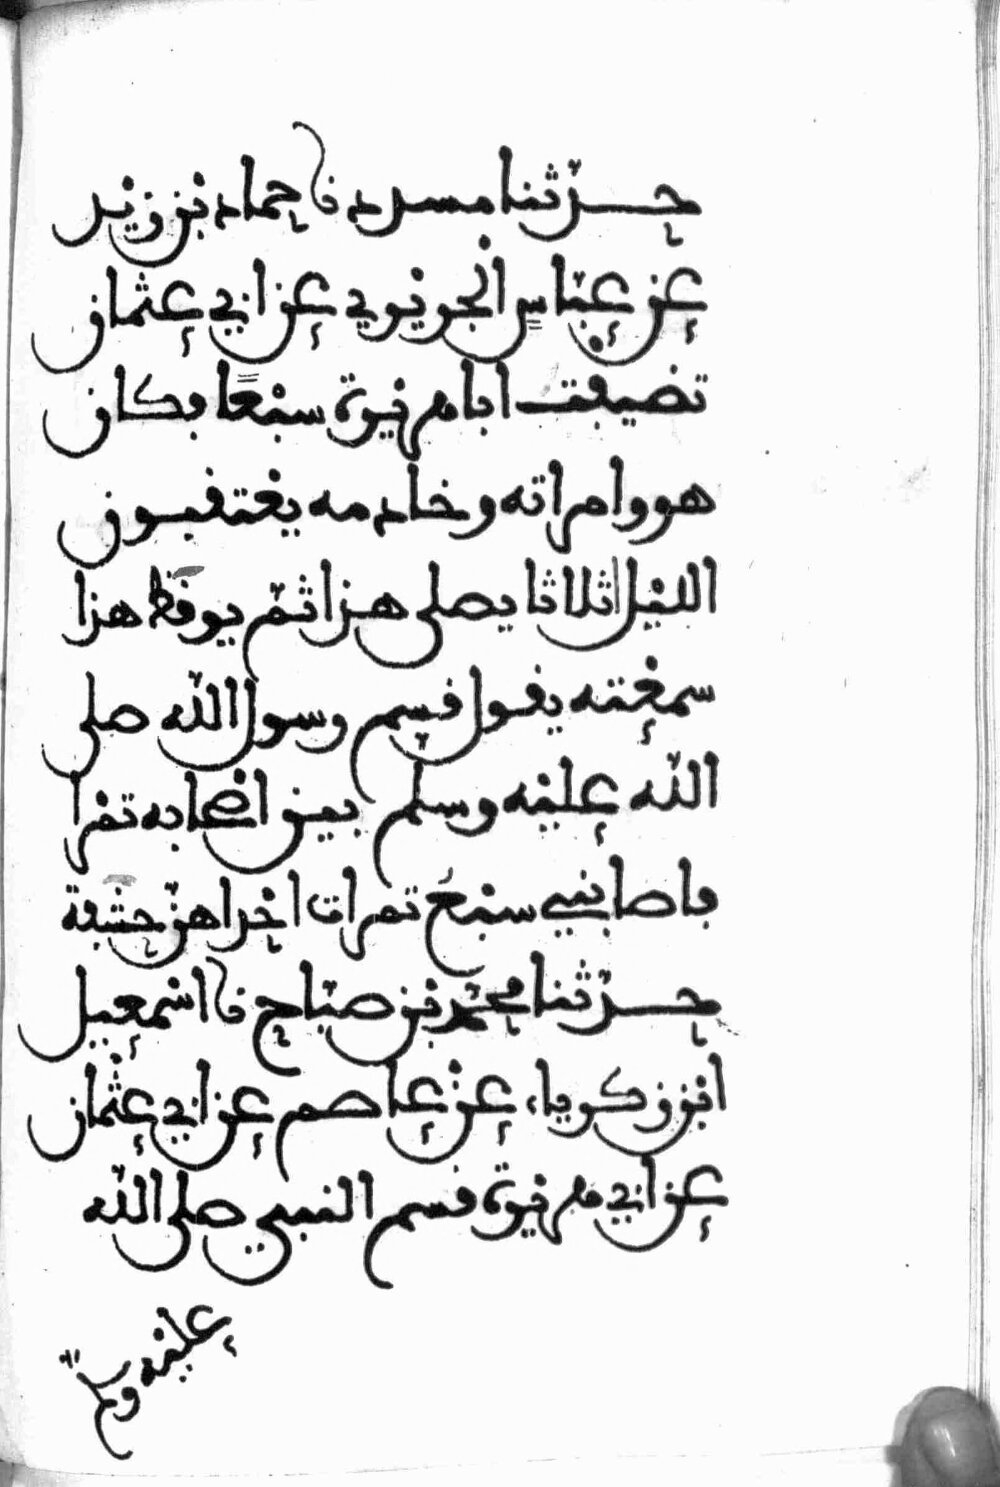 حدثنا مسدد نا حماد بن زيد
عن عباس الجريري عن ابي عثمان
تضيفت ابا هريرة سبعا فكان
هو وامراته وخادمه يعتقبون
الليل اثلاثا يصلي هذا ثم يوقظ هذا
سمعته يقول قسم رسول الله صلى
الله عليه وسلم بين اصحابه تمرا
فاصابني سبع تمرات احداهن حشفة
حدثنا محمد بن صباح نا اسمعيل
ابن زكرياء عن عاصم عن ابي عثمان
عن ابي هريرة قسم النبي صلى الله
عليه و